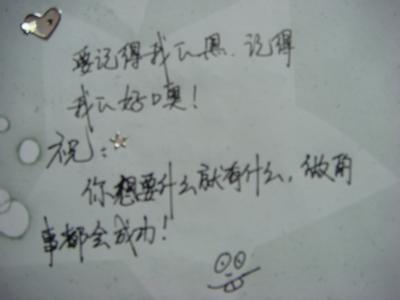 要记得我们思.记得
我们好口奥!
祝:
你想要什么就有什么,做的
事都会成功!